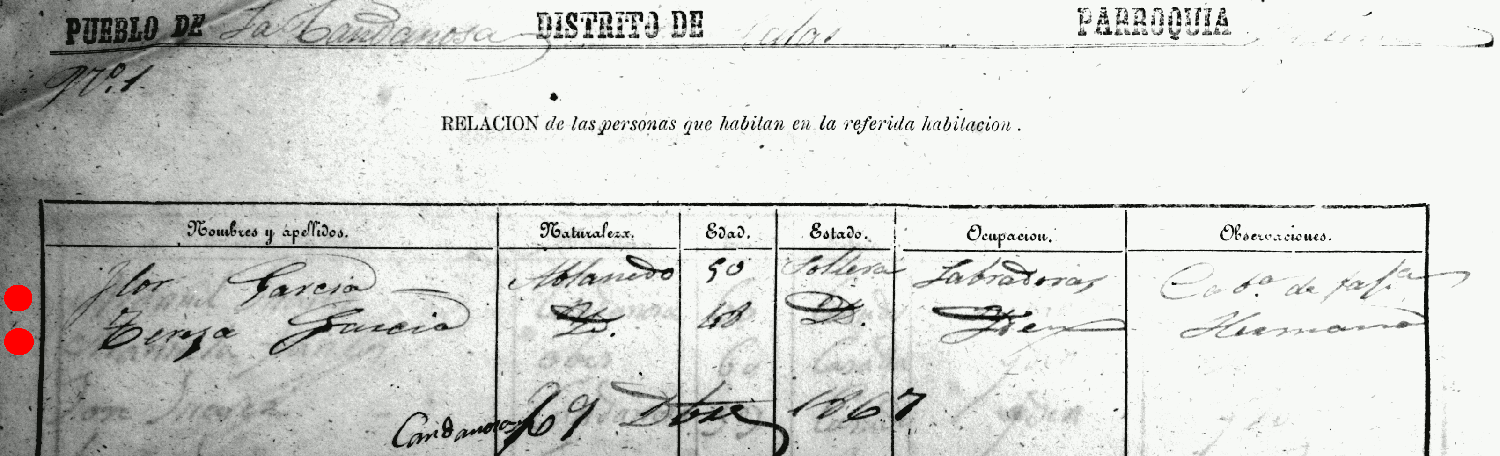 PUEBLO DE La Candanosa DISTRITO DE Salas PARROQUIA
Nº. 1
RELACION de las personas que habitan en la referida habitacion.
Nombres y apellidos. Naturaleza. Edad. Estado. Ocupacion. Observaciones.
Flor Garcia Ablanedo 50 Soltera Labradoras Cabª de fafª
Tereza Garcia Yd. 48 Yd. Yden Hermana
Candanosa 29 Dbre 1867